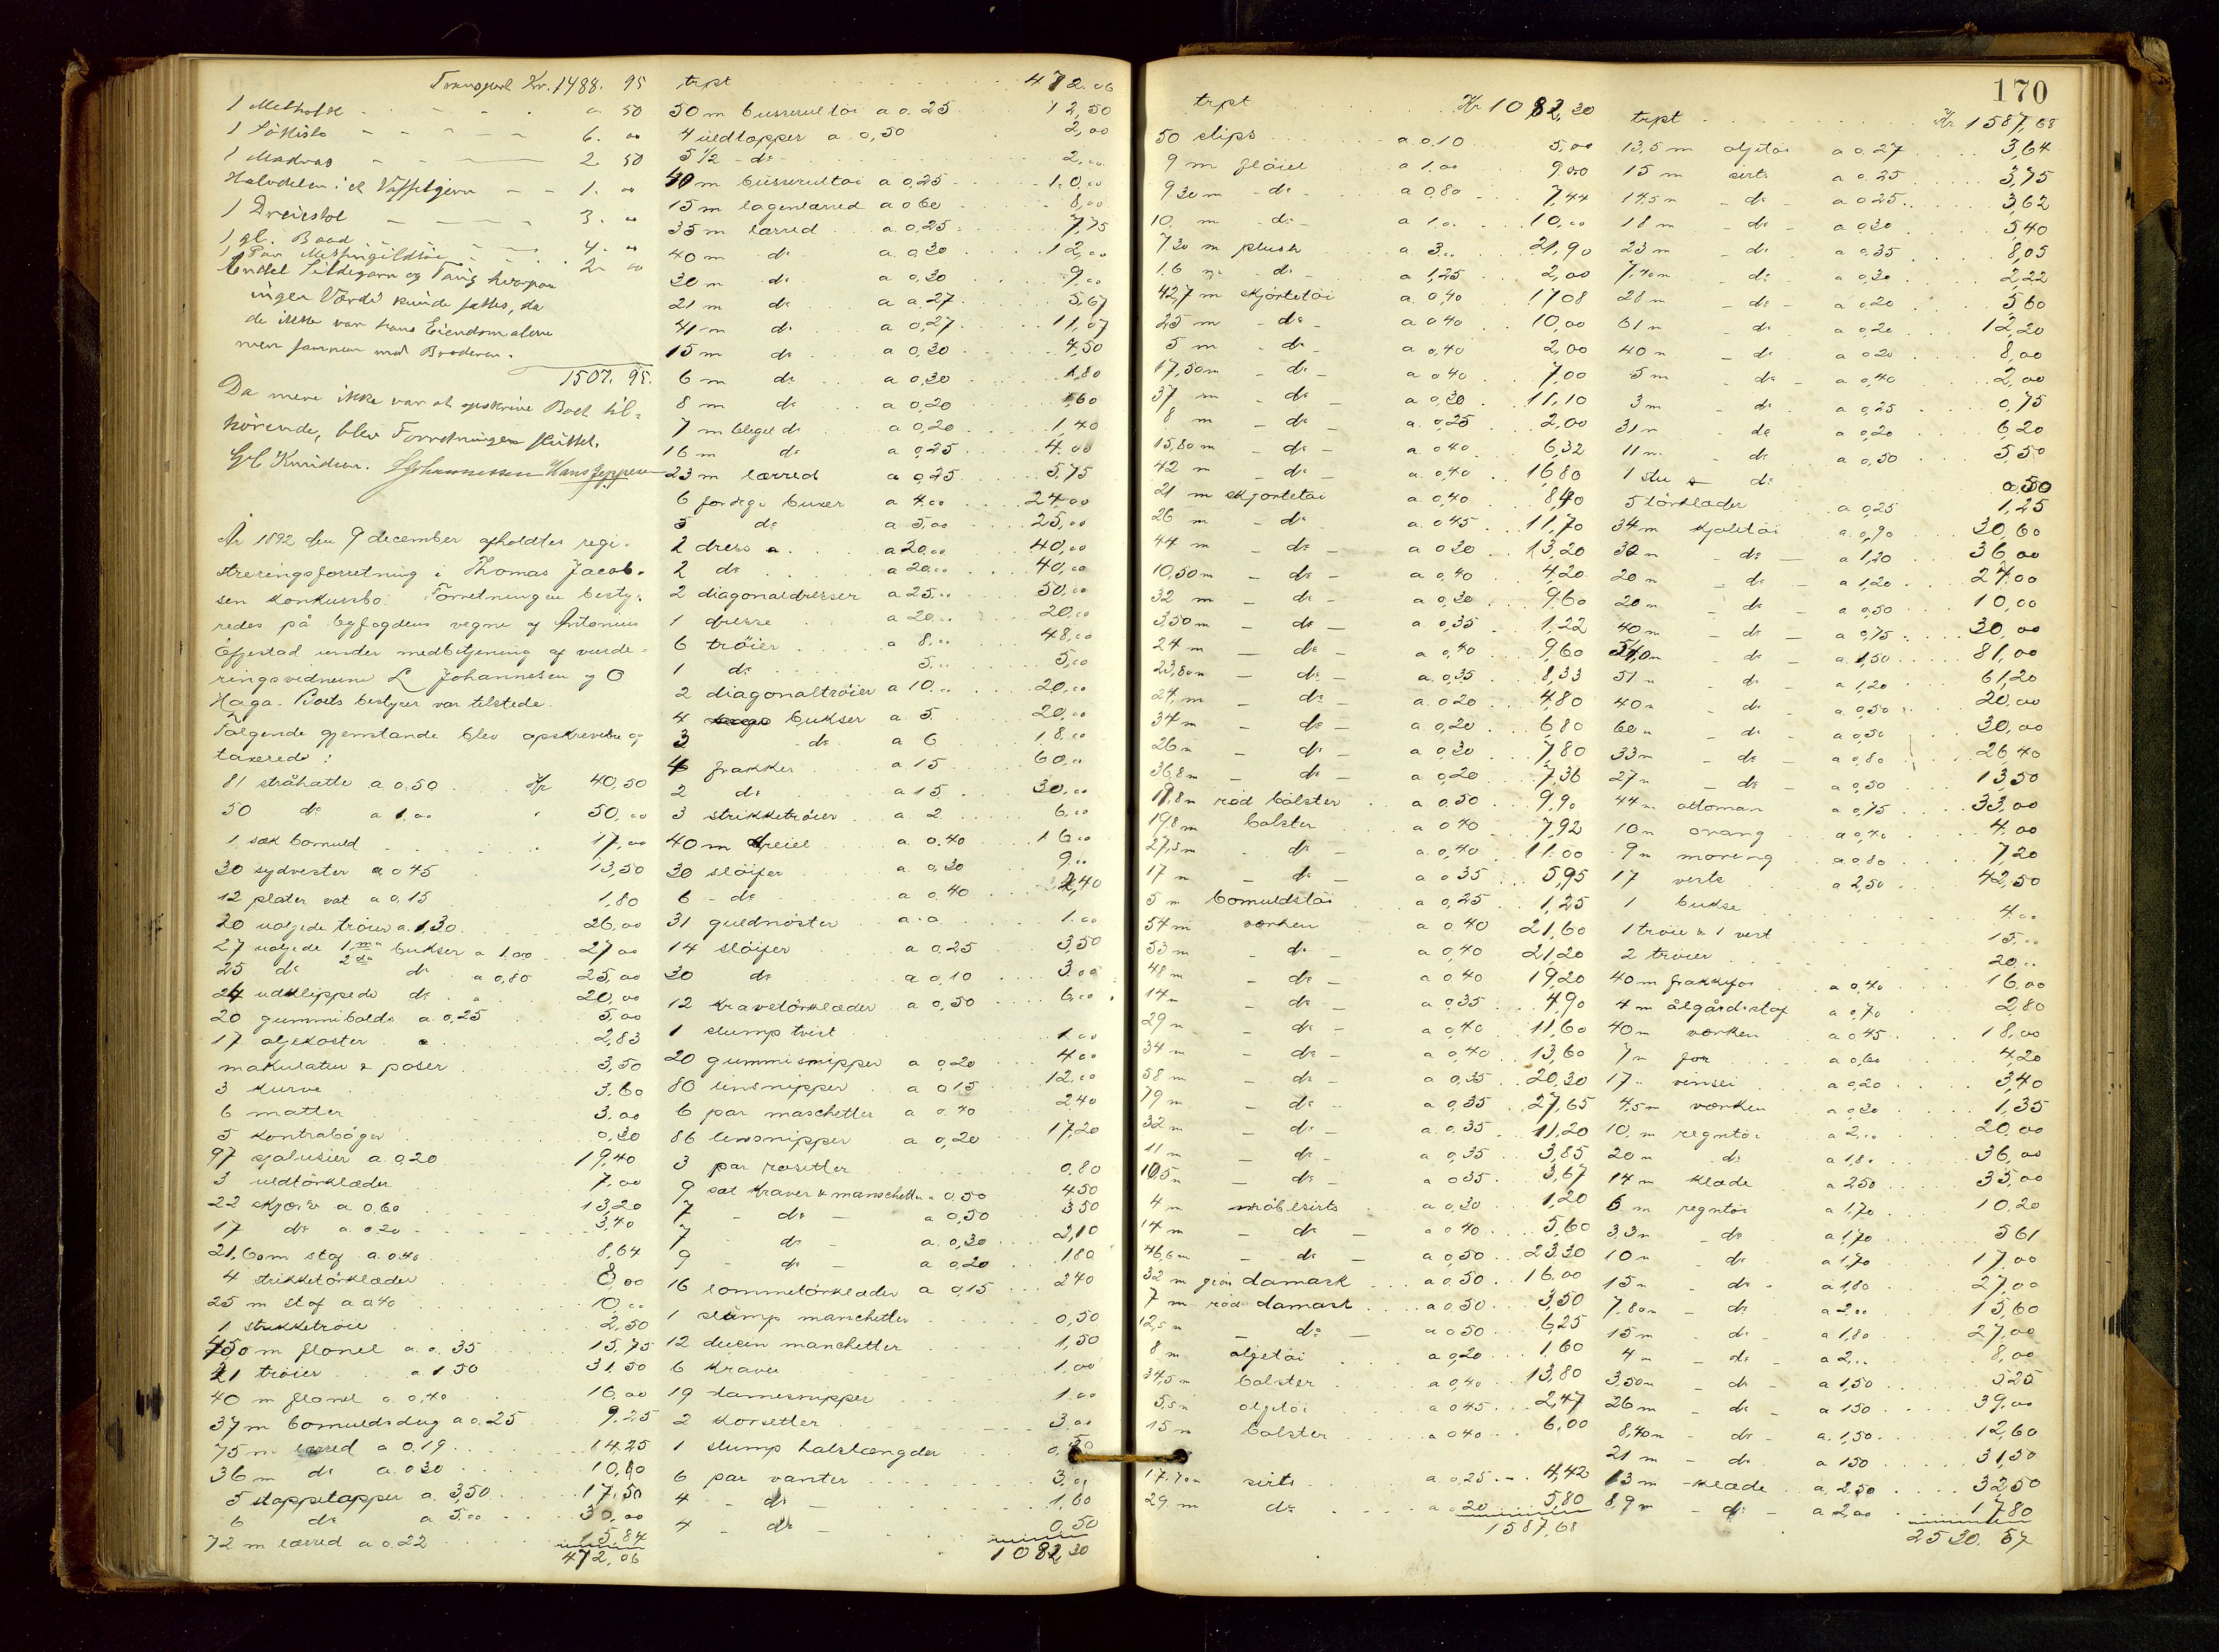 Transport Kr. 1488. 95
1 Melholk - - - . " 50
1 Sökiste - - - - - 6. 00
1 Madras - - - - 2. 50
Halvdelen i et Vaffeljern - - 1. 00
1 Dreiestol - - - - 3. 00
1 gl. Baad - - - 4. 00
1 Par . . 2. 00
Endel Sildegarn og Toug hvorpaa
ingen Værdi kunde sættes, da
de ikke var hans Eiendom alene
men sammen med Broderen.
1507. 95.
Da mere ikke var at opskrive Boet til-
hörende, blev Forretningen sluttet.
Knudsen. Johannessen Hans Jeppesen
År 1892 den 9 december afholdtes regi-
streringsforretning i Thomas Jacob-
sen konkursbo. Forretningen besty-
redes på bygfogdens vegne af Antonius
Egjestad under medbetjening af vurde-
ringsvidnerne L Johannesen og O
Haga. Boets bestyrer var tilstede.
Følgende gjenstande blev opskrevne og
taxerede:
81 stråhatte a 0,50 Kr 40,50
50 do a 1,00 " 50,00
1 sæk bomuld 17,00
30 sydvester a 0 45 13,50
12 plater vat a 0,15 1,80
20 uoljede tröier a 1,30 26,00
27 uoljede 1ma bukser a 1,00 27,00
25 do 2da do a 0,80 25,00
24 udklippede do a 20,00
20 gummibolde a 0,25 5,00
17 oljekoster a 2,83
makulatur & poser 3,50
3 kurve 3,60
6 matter 3,00
5 kontraböger 0,30
97 sjalusier a 0,20 19,40
3 uldtörklæder 7,00
22 skjorte a 0,60 13,20
17 do a 0,20 3,40
21,60 m stof a 0,40 8,64
4 strikketörklæder 8,00
25 m stof a 0,40 10,00
1 strikketröie 2,50
450 m flonel a 0,35 15,75
21 tröier a 1 50 31,50
40 m flonel a 0,40 16,00
37 m bomuldsdug a 0,25 9,25
75 m lærred a 0,19 14,25
36 m do a 0 30 10,80
5 stoppetæpper a 3,50 17,50
6 do a 5,00 30,00
72 m lærred a 0,22 15,84
472,06
trpt 472.06
50 m busserultöi a 0,25 12,50
4 uldtæpper a 0,50 2,00
5 1/2 - do - 2,00
40 m busserultöi a 0,25 10,00
15 m lagenlærred a 0 60 8,00
35 m lærred a 0,25 7,75
40 m do a 0,30 12,00
30 m do a 0,30 9,00
21 m do a 0,27 5,67
41 m do a 0,27 11,07
15 m do a 0,30 4,50
6 m do a 0,30 1,80
8 m do a 0,20 1,60
7 m bleget do a 0,20 1,40
16 m do a 0,25 4,00
23 m lærred a 0,25 5,75
6 færdige buxer a 4,00 24,00
5 do a 5,00 25,00
2 dress a a 20,00 40,00
2 do a 20,00 40,00
2 diagonaldresser a 25,00 50,00
1 dresse a 20,00 20,00
6 tröier a 8,00 48,00
1 do 5,00 5,00
2 diagonaltröier a 10,00 20,00
4 bukser a 5. 20,00
3 do a 6 18,00
4 frakker a 15 60,00
2 do a 15 30,00
3 strikketröier a 2 6,00
40 m dreiel a 0,40 16,00
30 slöifer a 0,30 9,00
6 - do a 0,40 2,40
31 guldnöster a a 1,00
14 slöifer a 0,25 3,50
30 do a 0,10 3,00
12 kravetörklæder a 0,50 6,00
1 slump tvist 1,00
20 gummisnipper a 0,20 4,00
80 linsnipper a 0 15 12,00
6 par maschetter a 0,40 2,40
86 linsnipper a 0,20 17,20
3 par rosetter 0,80
9 sæt kraver & manschetter a 0,50 4,50
7 - do - a 0,50 3,50
7 - do - a 0,30 2,10
9 - do - a 0,20 1,80
16 lommetörklæder a 0,15 2,40
1 slump manchetter 0,50
12 dusin manchetter 1,50
6 kraver 1,00
19 damesnipper 1,00
2 korsetter 3,00
1 slump halslængder 0,50
6 par vanter 3,00
4 - do - 1,60
4 - do - 0,50
1082,30
170
trpt Kr 1082,30
50 slips a 0,10 5,00
9 m flöiel a 1,00 9,00
9,30 m - do - a 0,80 7,44
10 m - do a 1,00 10,00
7,30 m plush a 3,00 21,90
1,6 m - do - a 1,25 2,00
42,7 m skjortetöi a 0,40 17,08
25 m - do - a 0 40 10,00
5 m - do - a 0,40 2,00
17,50 m - do - a 0 40 7,00
37 m - do - a 0,30 11,10
8 m - do - a 0,25 2,00
15,80 m - do - a 0 40 6,32
42 m - do - a 0,40 16,80
21 m skjortetöi a 0,40 8,40
26 m - do a 0 45 11,70
44 m - do - a 0 30 13,20
10,50 m - do - a 0,40 4,20
32 m - do - a 0,30 9,60
3,50 m - do - a 0,35 1,22
24 m - do - a 0,40 9,60
23,80 m - do - a 0,35 8,33
24 m - do - a 0 20 4,80
34 m - do - a 0,20 6,80
26 m - do - a 0,30 7,80
36,8 m - do - a 0,20 7,36
19,8 m röd bolster a 0,50 9,90
19,8 m bolster a 0 40 7,92
27,5 m - do - a 0,40 11,00
17 m - do - a 0 35 5,95
5 m bomuldstöi a 0,25 1,25
54 m værken a 0,40 21,60
53 m - do - a 0,40 21,20
48 m - do - a 0 40 19,20
14 m - do - a 0,35 4,90
29 m - do - a 0,40 11,60
34 m - do - a 0,40 13,60
58 m - do - a 0,35 20,30
79 m - do - a 0,35 27,65
32 m - do - a 0,35 11,20
11 m - do - a 0,35 3,85
10,5 m - do - a 0 35 3,67
4 m möblesirts a 0,30 1,20
14 m - do - a 0 40 5,60
46,6 m - do - a 0,50 23,30
32 m grön damask a 0,50 16,00
7 m röd damask a 0,50 3,50
12,5 m - do - a 0 50 6,25
8 m oljetöi a 0,20 1,60
34,5 m bolster a 0,40 13,80
5,5 m oljetöi a 0 45 2,47
15 m bolster a 0 40 6,00
17,70 m sirts a 0,25 4,42
29 m do a 0 20 5,80
1587,68
trpt Kr 1587,68
13,5 m oljetöi a 0,27 3,64
15 m sirts a 0,25 3,75
14,5 m - do - a 0 25 3,62
18 m - do - a 0 30 5,40
23 m - do a 0,35 8,05
7,40 m do a 0,30 2,22
28 m - do - a 0,20 5,60
61 m - do a 0,20 12,20
40 m - do a 0 20 8,00
5 m - do - a 0,40 2,00
3 m - do a 0,25 0,75
31 m - do a 0,20 6,20
11 m - do a 0,50 5,50
1 stu do 0,50
5 törklæder a 0,25 1,25
34 m kjoletöi a 0,90 30,60
30 m do - a 1,20 36,00
20 m - do - a 1,20 24,00
20 m - do - a 0,50 10,00
40 m - do - a 0,75 30,00
54,0 m - do - a 1,50 81,00
51 m - do - a 1,20 61,20
40 m - do - a 0,50 20,00
60 m - do - a 0,50 30,00
33 m - do - a 0,80 26,40
27 m - do - a 0,50 13,50
44 m ottoman a 0,75 33,00
10 m orang a 0,40 4,00
9 m moreng a 0,80 7,20
17 veste a 2,50 42,50
1 bukse 4,00
1 tröie & 1 vest 15,00
2 tröier 20,00
40 m frakkefor a 0,40 16,00
4 m ålgårdsstof a 0,70 2,80
40 m værken a 0 45 18,00
7 m for a 0,60 4,20
17 " vinsei a 0,20 3,40
4,5 m værken a 0,30 1,35
10 m regntöi a 2,00 20,00
20 m do a 1,80 36,00
14 m klæde a 2 50 35,00
6 m regntöi a 1,70 10,20
3,3 m - do a 1,70 5 61
10 m - do a 1,70 17,00
15 m - do - a 1,80 27,00
7,80 m - do a 2,00 15,60
15 m - do - a 1,80 27,00
4 m - do - a 2,00 8,00
3,50 m - do - a 1,50 5 25
26 m - do - a 1 50 39,00
8,40 m - do - a 1,50 12,60
21 m - do a 1 50 31,50
13 m - klæde a 2,50 32,50
8,9 m - do - a 2,00 17,80
2530.57